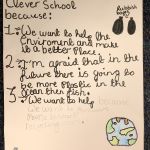 Clever School
because:
Rubbish
bags
1. We want to help the
Enviroment and make
it a better Place.
2. I'm afraid that in the
future there is going to
be more Plastic in the
Ocean then fish.
3. We want to help